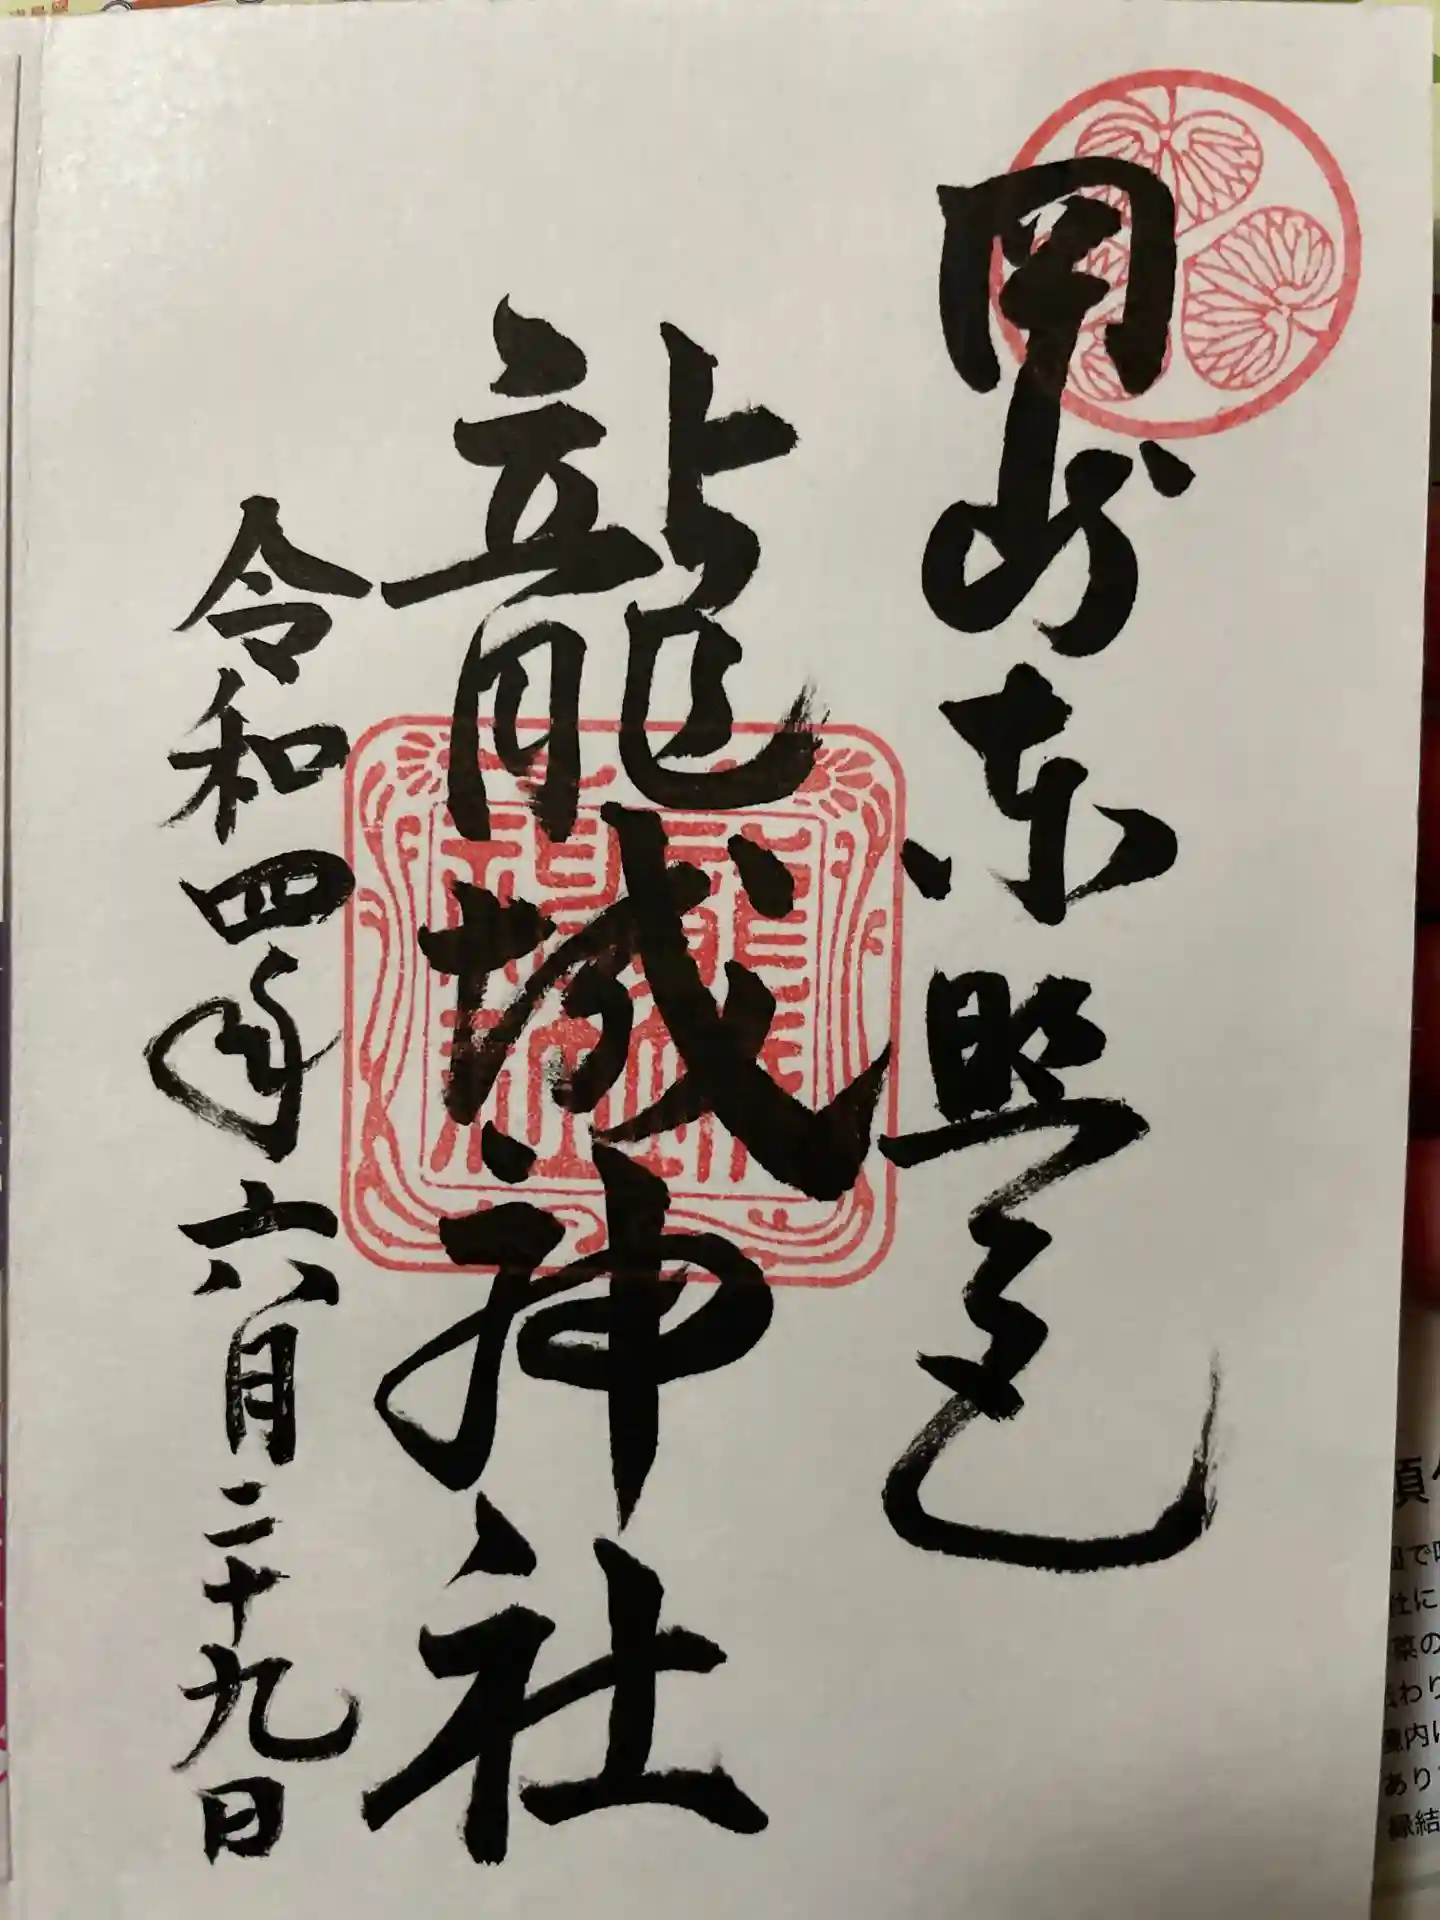 岡崎東照宮
龍城神社
令和四年六月二十九日
で
社に
葉の
わり
境内
あり
縁結